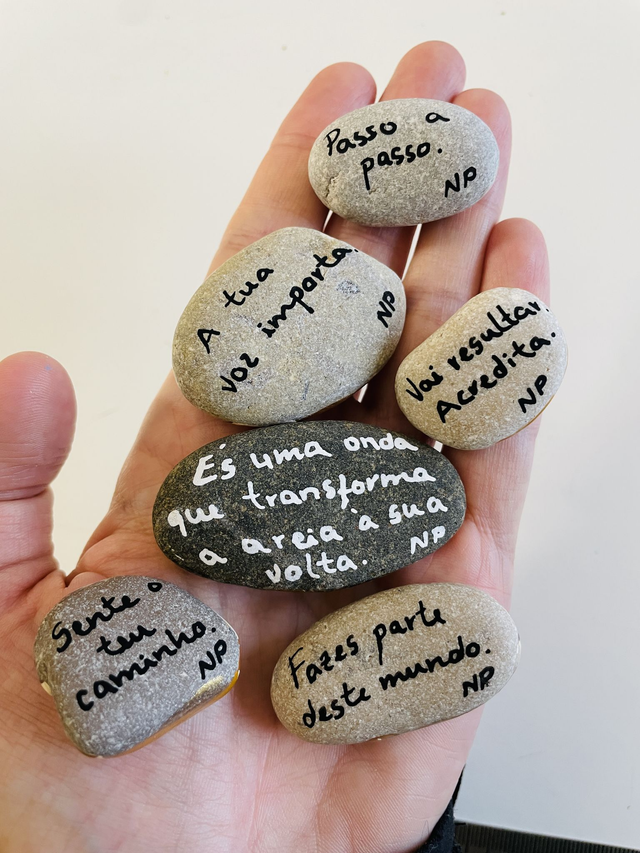 Passo a
passo.
NP
A tua
voz importa.
NP
Vai resultar.
Acredita.
NP
És uma onda
que transforma
a areia à sua
volta.
NP
Sente o
teu
caminho.
NP
Fazes parte
deste mundo.
NP